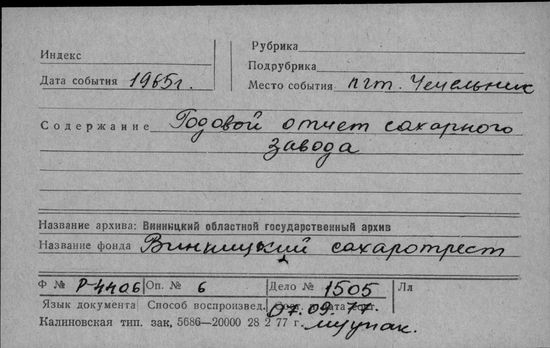 Индекс
Рубрика
Подрубрика
Дата события 1965г.
Место события пгт. Чечельник
Содержание Годовой отчет сахарного
завода
Название архива: Винницкий областной государственный архив
Название фонда Винницкий сахаротрест
Ф № Р-4406 Оп. № 6 Дело № 1505 Лл
Язык документа Способ воспроизвед.
07.09.77.
Калиновская тип. зак, 5686—20000 28 2 77 г.